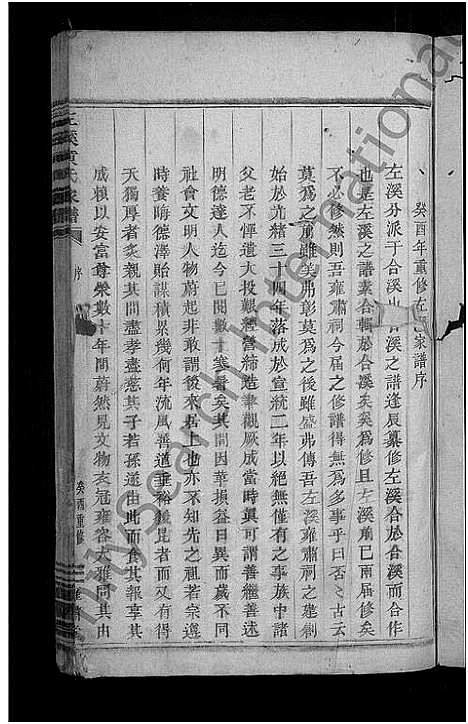 癸酉年重修左溪家譜序
左溪分派于合溪也合溪之譜逢辰纂修左溪合於合溪而合作
也是左溪之譜素合輯於合溪矣奚爲修且左溪前已兩屆修矣
不必修然則吾雍肅祠今届之修譜得無爲多事乎曰否否古云
莫爲之前雖美弗彰莫爲之後雖盛弗傳吾左溪雍肅祠之建創
始於光緒三十四年落成於宣統二年以絕無僅有之事族中諸
父老不憚遺大投艱經營締造聿觀厥成當時眞可謂善繼善述
明德達人迄今已閱數十寒暑矣其間因革損益日異而歲不同
社會文明人物蔚起非敢謂後來居上也亦不知先之祖若宗遵
時養晦德澤貽謀積累幾何年流風善道垂裕後昆者而又有得
天獨厚者炙親其間盡孝盡慈其子若孫遂由此而食其報享其
成賴以安富尊榮數十年間蔚然見文物衣冠雍容大雅問其由
左溪黃氏家譜
序
癸酉重修
MySearch International